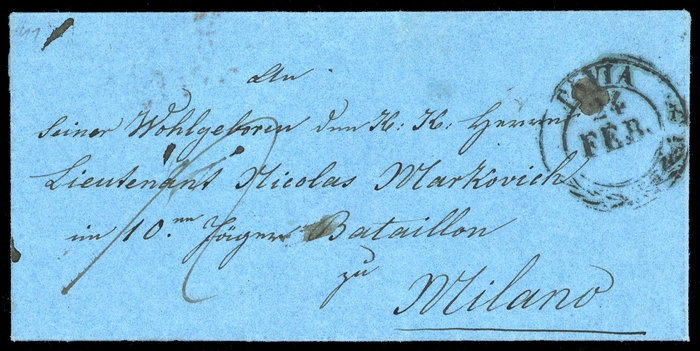 An
Seiner Wohlgeboren den K: K: Herrn
Lieutenant Nicolas Markovich
im 10.ten Jäger Bataillon
zu
Milano
PAVIA
24
FEB.